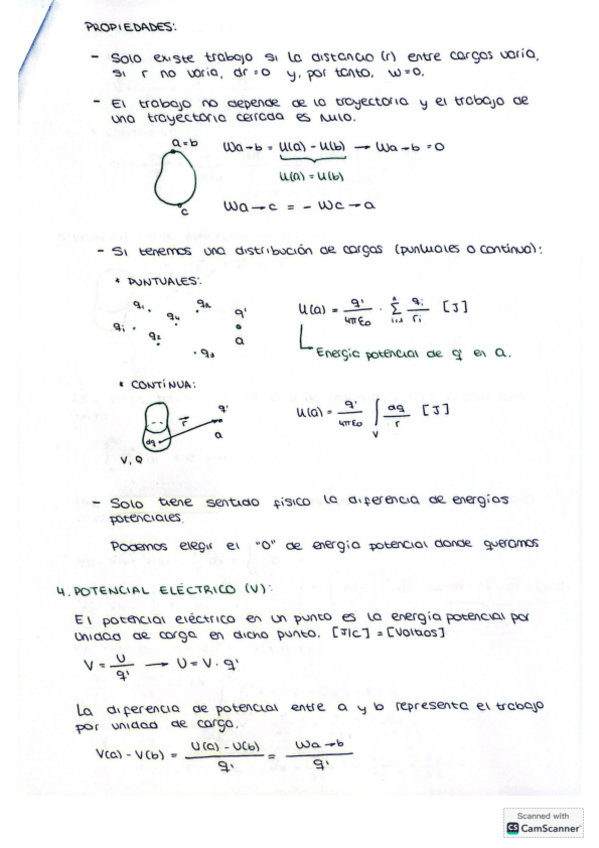 PROPIEDADES:
- Solo existe trabajo si la distancia (r) entre cargas varía,
si r no varía, dr=0 y, por tanto, W=0.
- El trabajo no depende de la trayectoria y el trabajo de
una trayectoria cerrada es nulo.
a=b
Wa→b = U(a) - U(b) → Wa→b = 0
U(a) = U(b)
c
Wa→c = - Wc→a
- Si tenemos una distribución de cargas (puntuales o continua):
* PUNTUALES:
q1 q4 q2 q3 qi q' a
U(a) = q'/4πε0 · Σ i=1 qi/ri [J]
Energía potencial de q' en a.
* CONTÍNUA:
dq r q' a
V, Q
U(a) = q'/4πε0 ∫V dq/r [J]
- Solo tiene sentido físico la diferencia de energías
potenciales.
Podemos elegir el "0" de energía potencial donde queramos
4. POTENCIAL ELÉCTRICO (V):
El potencial eléctrico en un punto es la energía potencial por
unidad de carga en dicho punto. [J/C] = [Voltios]
V = U/q' → U = V · q'
La diferencia de potencial entre a y b representa el trabajo
por unidad de carga.
V(a) - V(b) = U(a) - U(b)/q' = Wa→b/q'
Scanned with
CS CamScanner